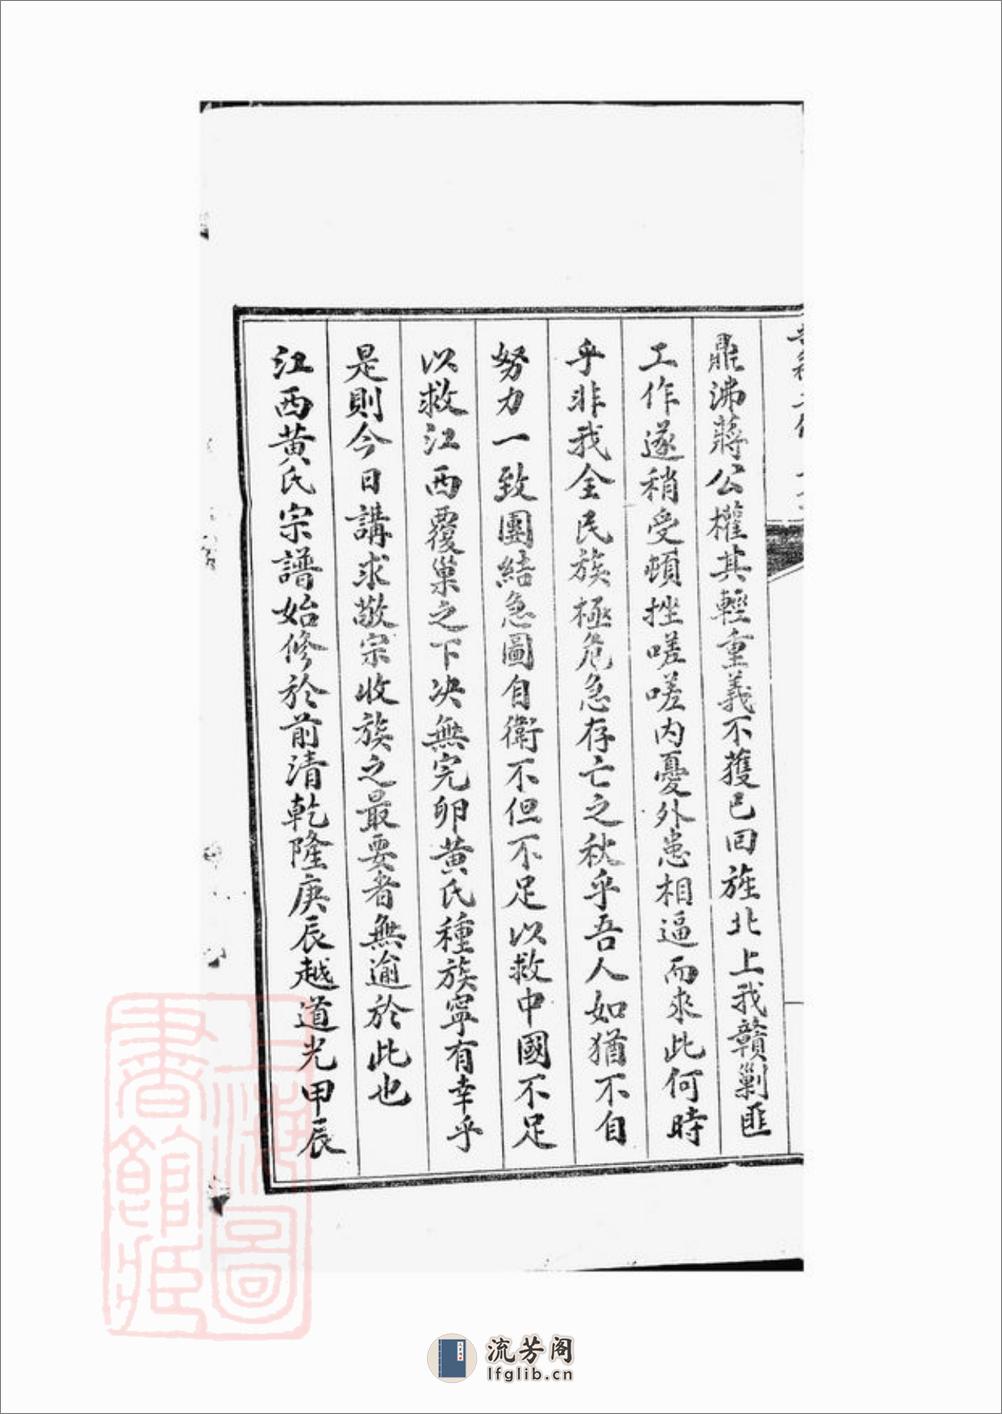 鼎沸蔣公權其輕重義不獲已回旌北上我贛剿匪
工作遂稍受頓挫嗟嗟內憂外患相逼而來此何時
乎非我全民族極危急存亡之秋乎吾人如猶不自
努力一致團結急圖自衛不但不足以救中國不足
以救江西覆巢之下决無完卵黄氏種族寧有幸乎
是則今日講求敬宗收族之最要者無逾於此也
江西黄氏宗譜始修於前清乾隆庚辰越道光甲辰
上海圖書館藏
流芳阁
lfglib.cn